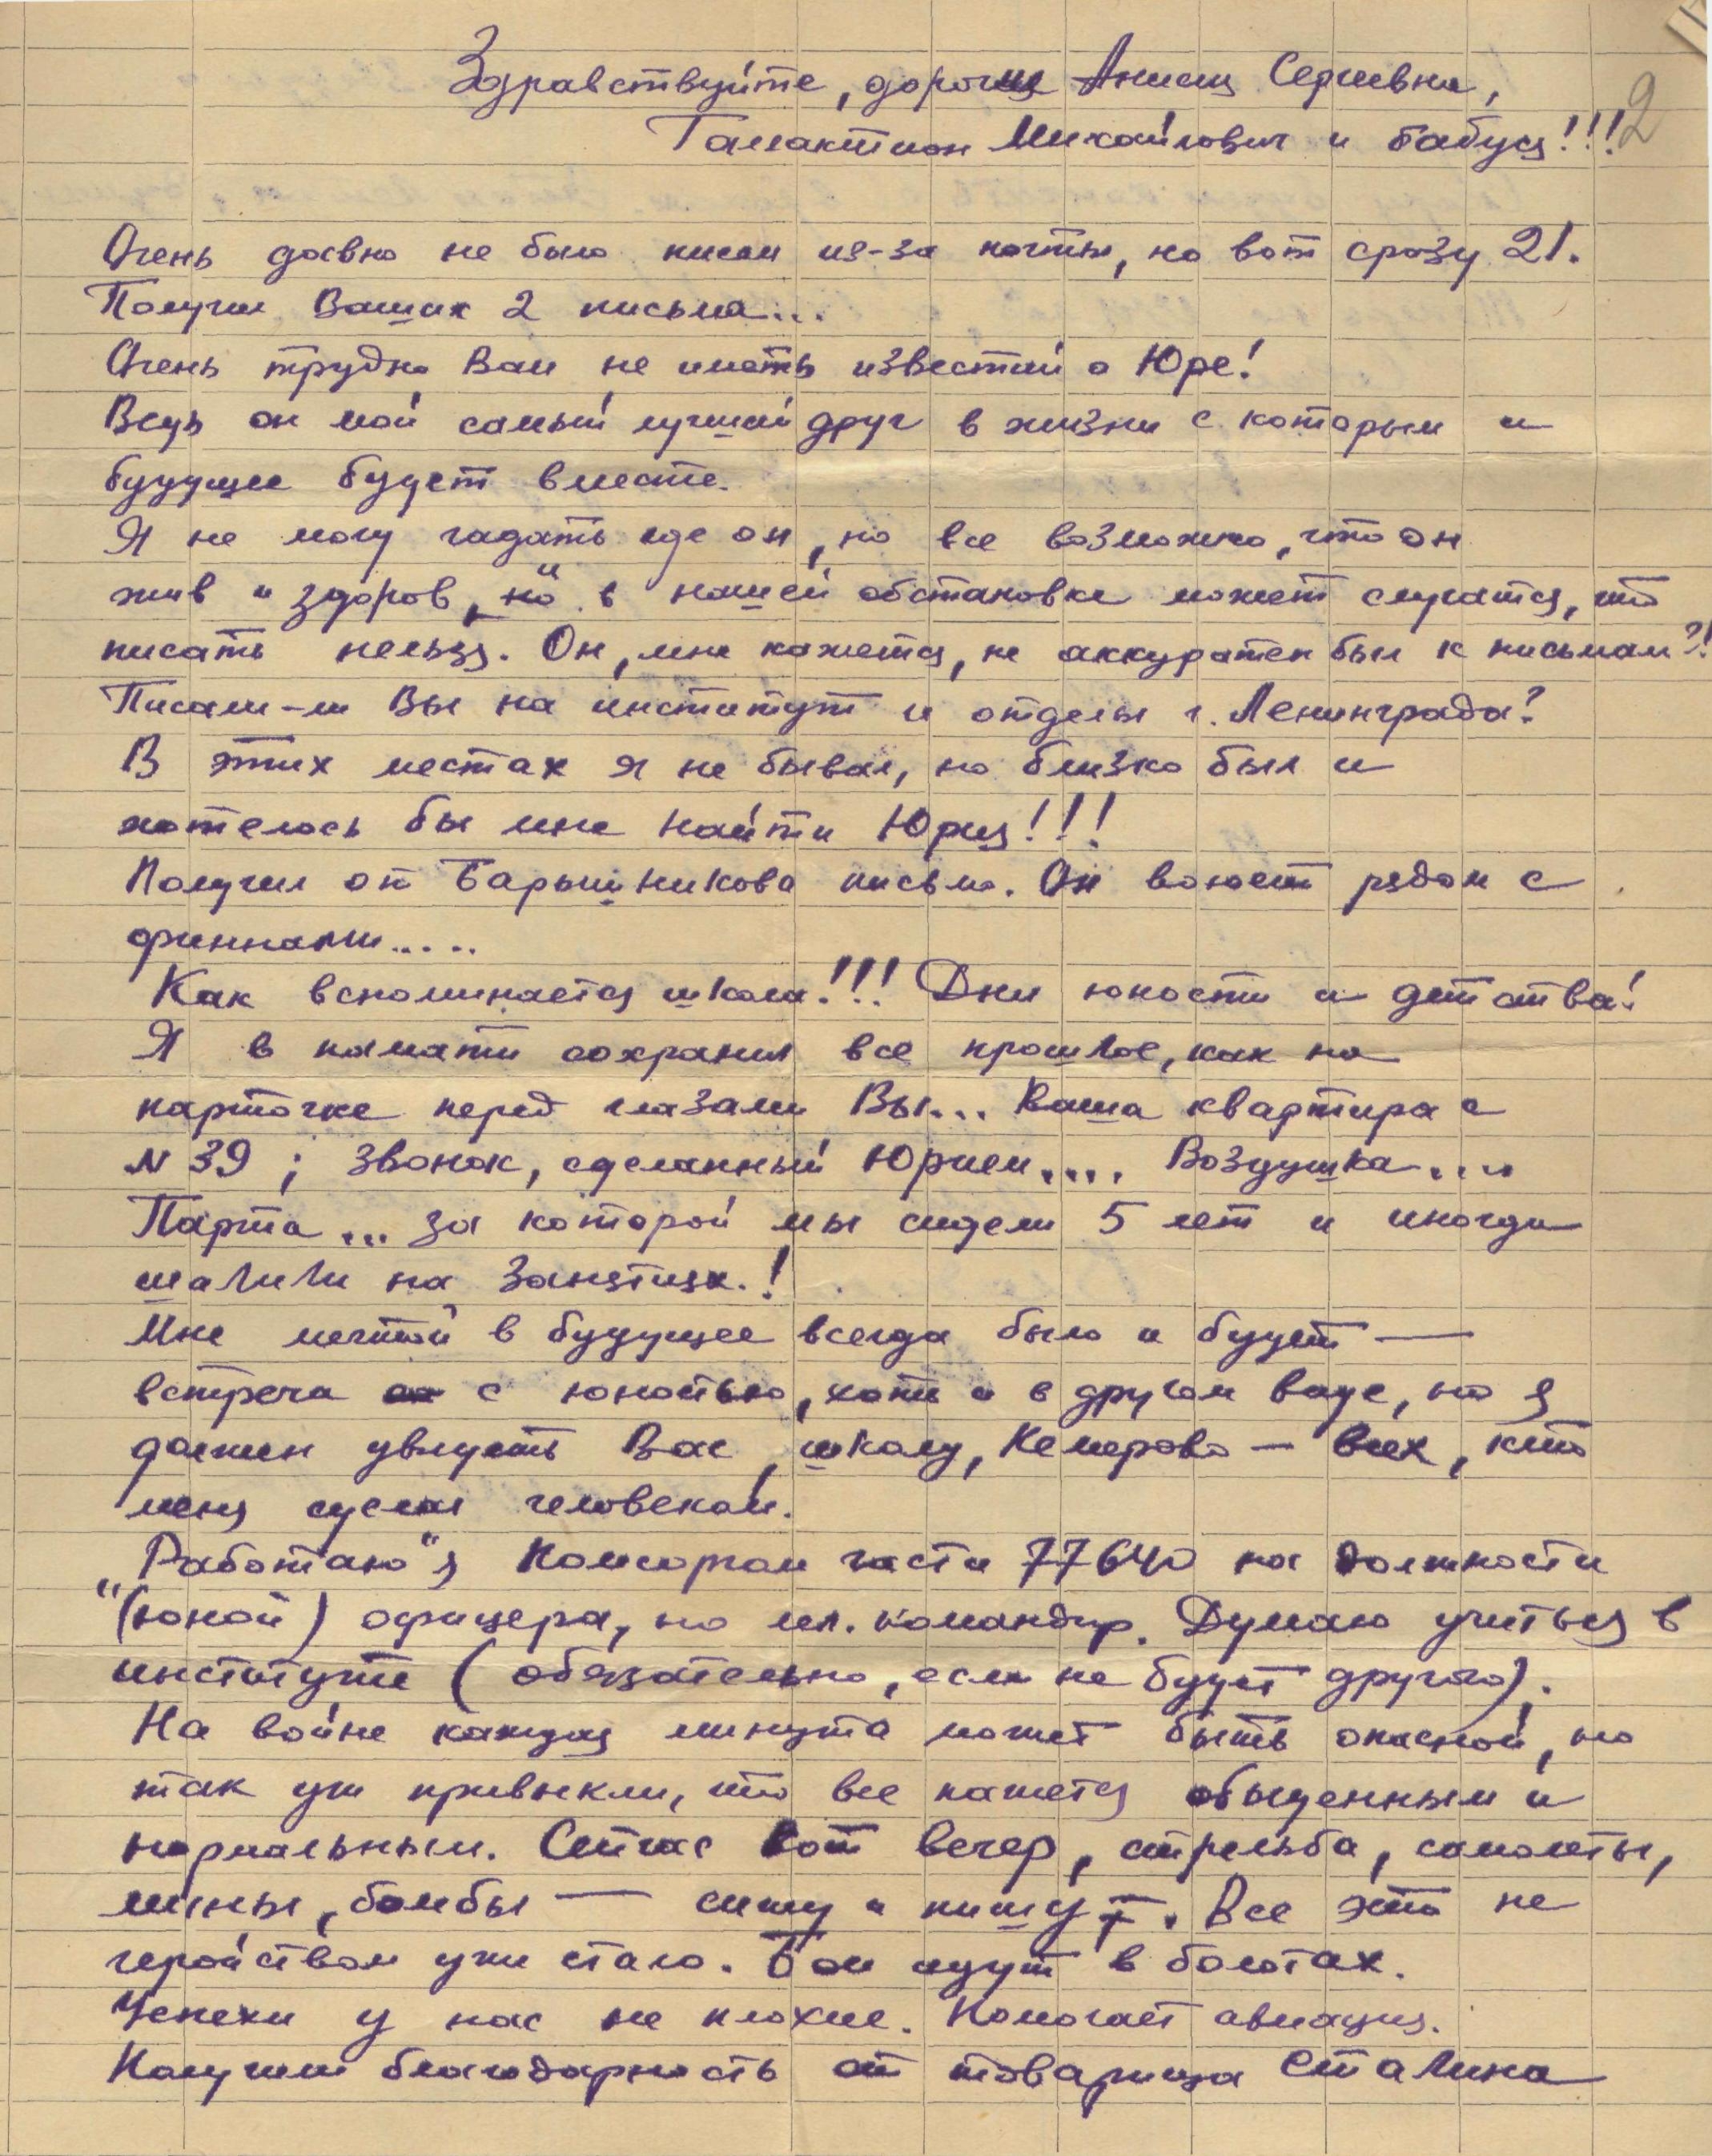 Здравствуйте, дорогие Анисия Сергеевна,
Галактион Михайлович и бабуся!!!
2
Очень давно не было писем из-за почты, но вот сразу 21.
Получил Ваших 2 письма...
Очень трудно Вам не иметь известий о Юре!
Ведь он мой самый лучший друг в жизни с которым и
будущее будет вместе.
Я не могу гадать где он, но все возможно, что он
жив и здоров, но в нашей обстановке может случатся, что
писать нельзя. Он, мне кажется, не аккуратен был к письмам?!
Писали-ли Вы на институт и отделы г. Ленинграда?
В этих местах я не бывал, но близко был и
хотелось бы мне найти Юрия!!!
Получил от Барышникова письмо. Он воюет рядом с
финнами.....
Как вспоминается школа!!! Дни юности и детства!
Я в памяти сохранил все прошлое, как на
карточке перед глазами Вы... Ваша квартира с
N 39; звонок, сделанный Юрием.... Воздушка....
Парта... за которой мы сидели 5 лет и иногда
шалили на занятиях.!
Мне мечтой в будущее всегда было и будет —
встреча с юностью, хотя и в другом виде, но я
должен увидеть Вас, школу, Кемерово — всех, кто
меня сделал человеком.
"Работаю" я Комсоргом части 77640 на должности
(юной) офицера, но мл. командир. Думаю учиться в
институте (обязательно, если не будет другого).
На войне каждая минута может быть опасной, но
так уж привыкли, что все кажется обыденным и
нормальным. Сейчас вот вечер, стрельба, самолеты,
мины, бомбы — сижу и пишу. Все это не
геройством уже стало. Бои идут в болотах.
Успехи у нас не плохие. Помогает авиация.
Получили благодарность от товарища Сталина